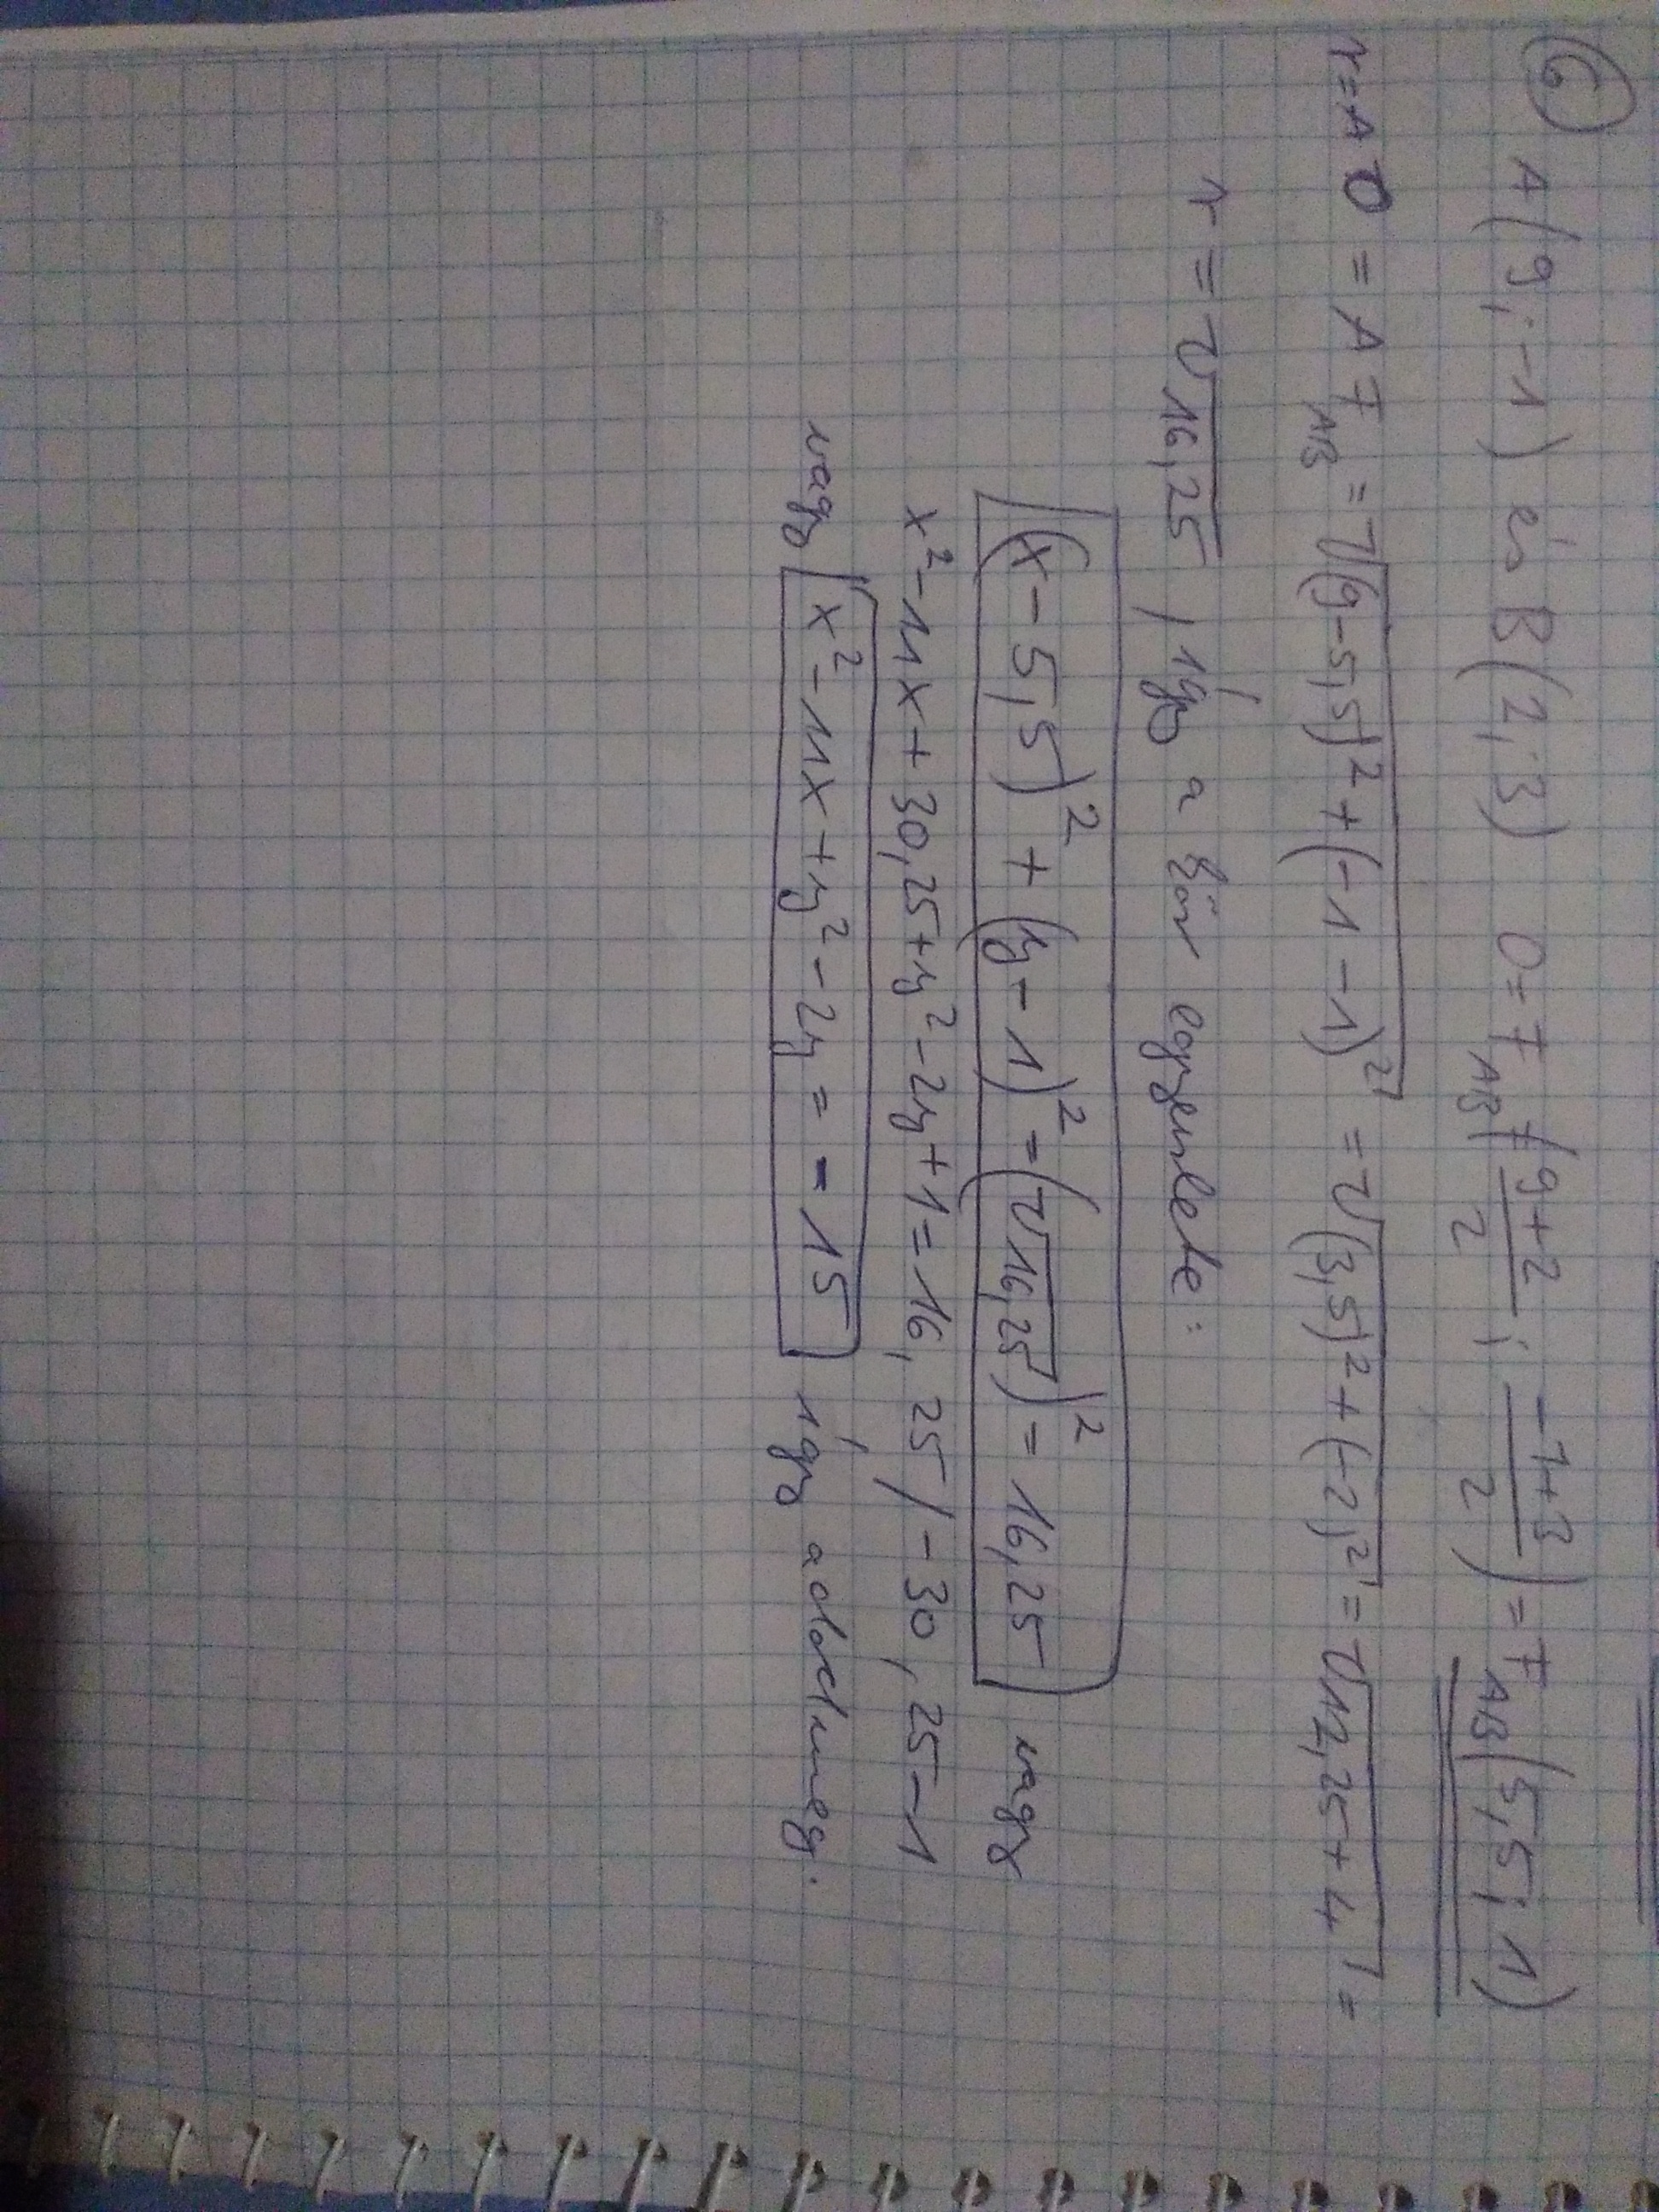 6 A(9;-1) és B(2;3) O=F_AB(9+2/2 ; -1+3/2) = F_AB(5,5;1)
r=AO = AF_AB = √(9-5,5)²+(-1-1)² = √(3,5)²+(-2)² = √12,25+4 =
r = √16,25, így a kör egyenlete:
(x-5,5)² + (y-1)² = (√16,25)² = 16,25 vagy
x²-11x+30,25+y²-2y+1=16,25 /-30,25-1
vagy x²-11x+y²-2y = -15 így add meg.